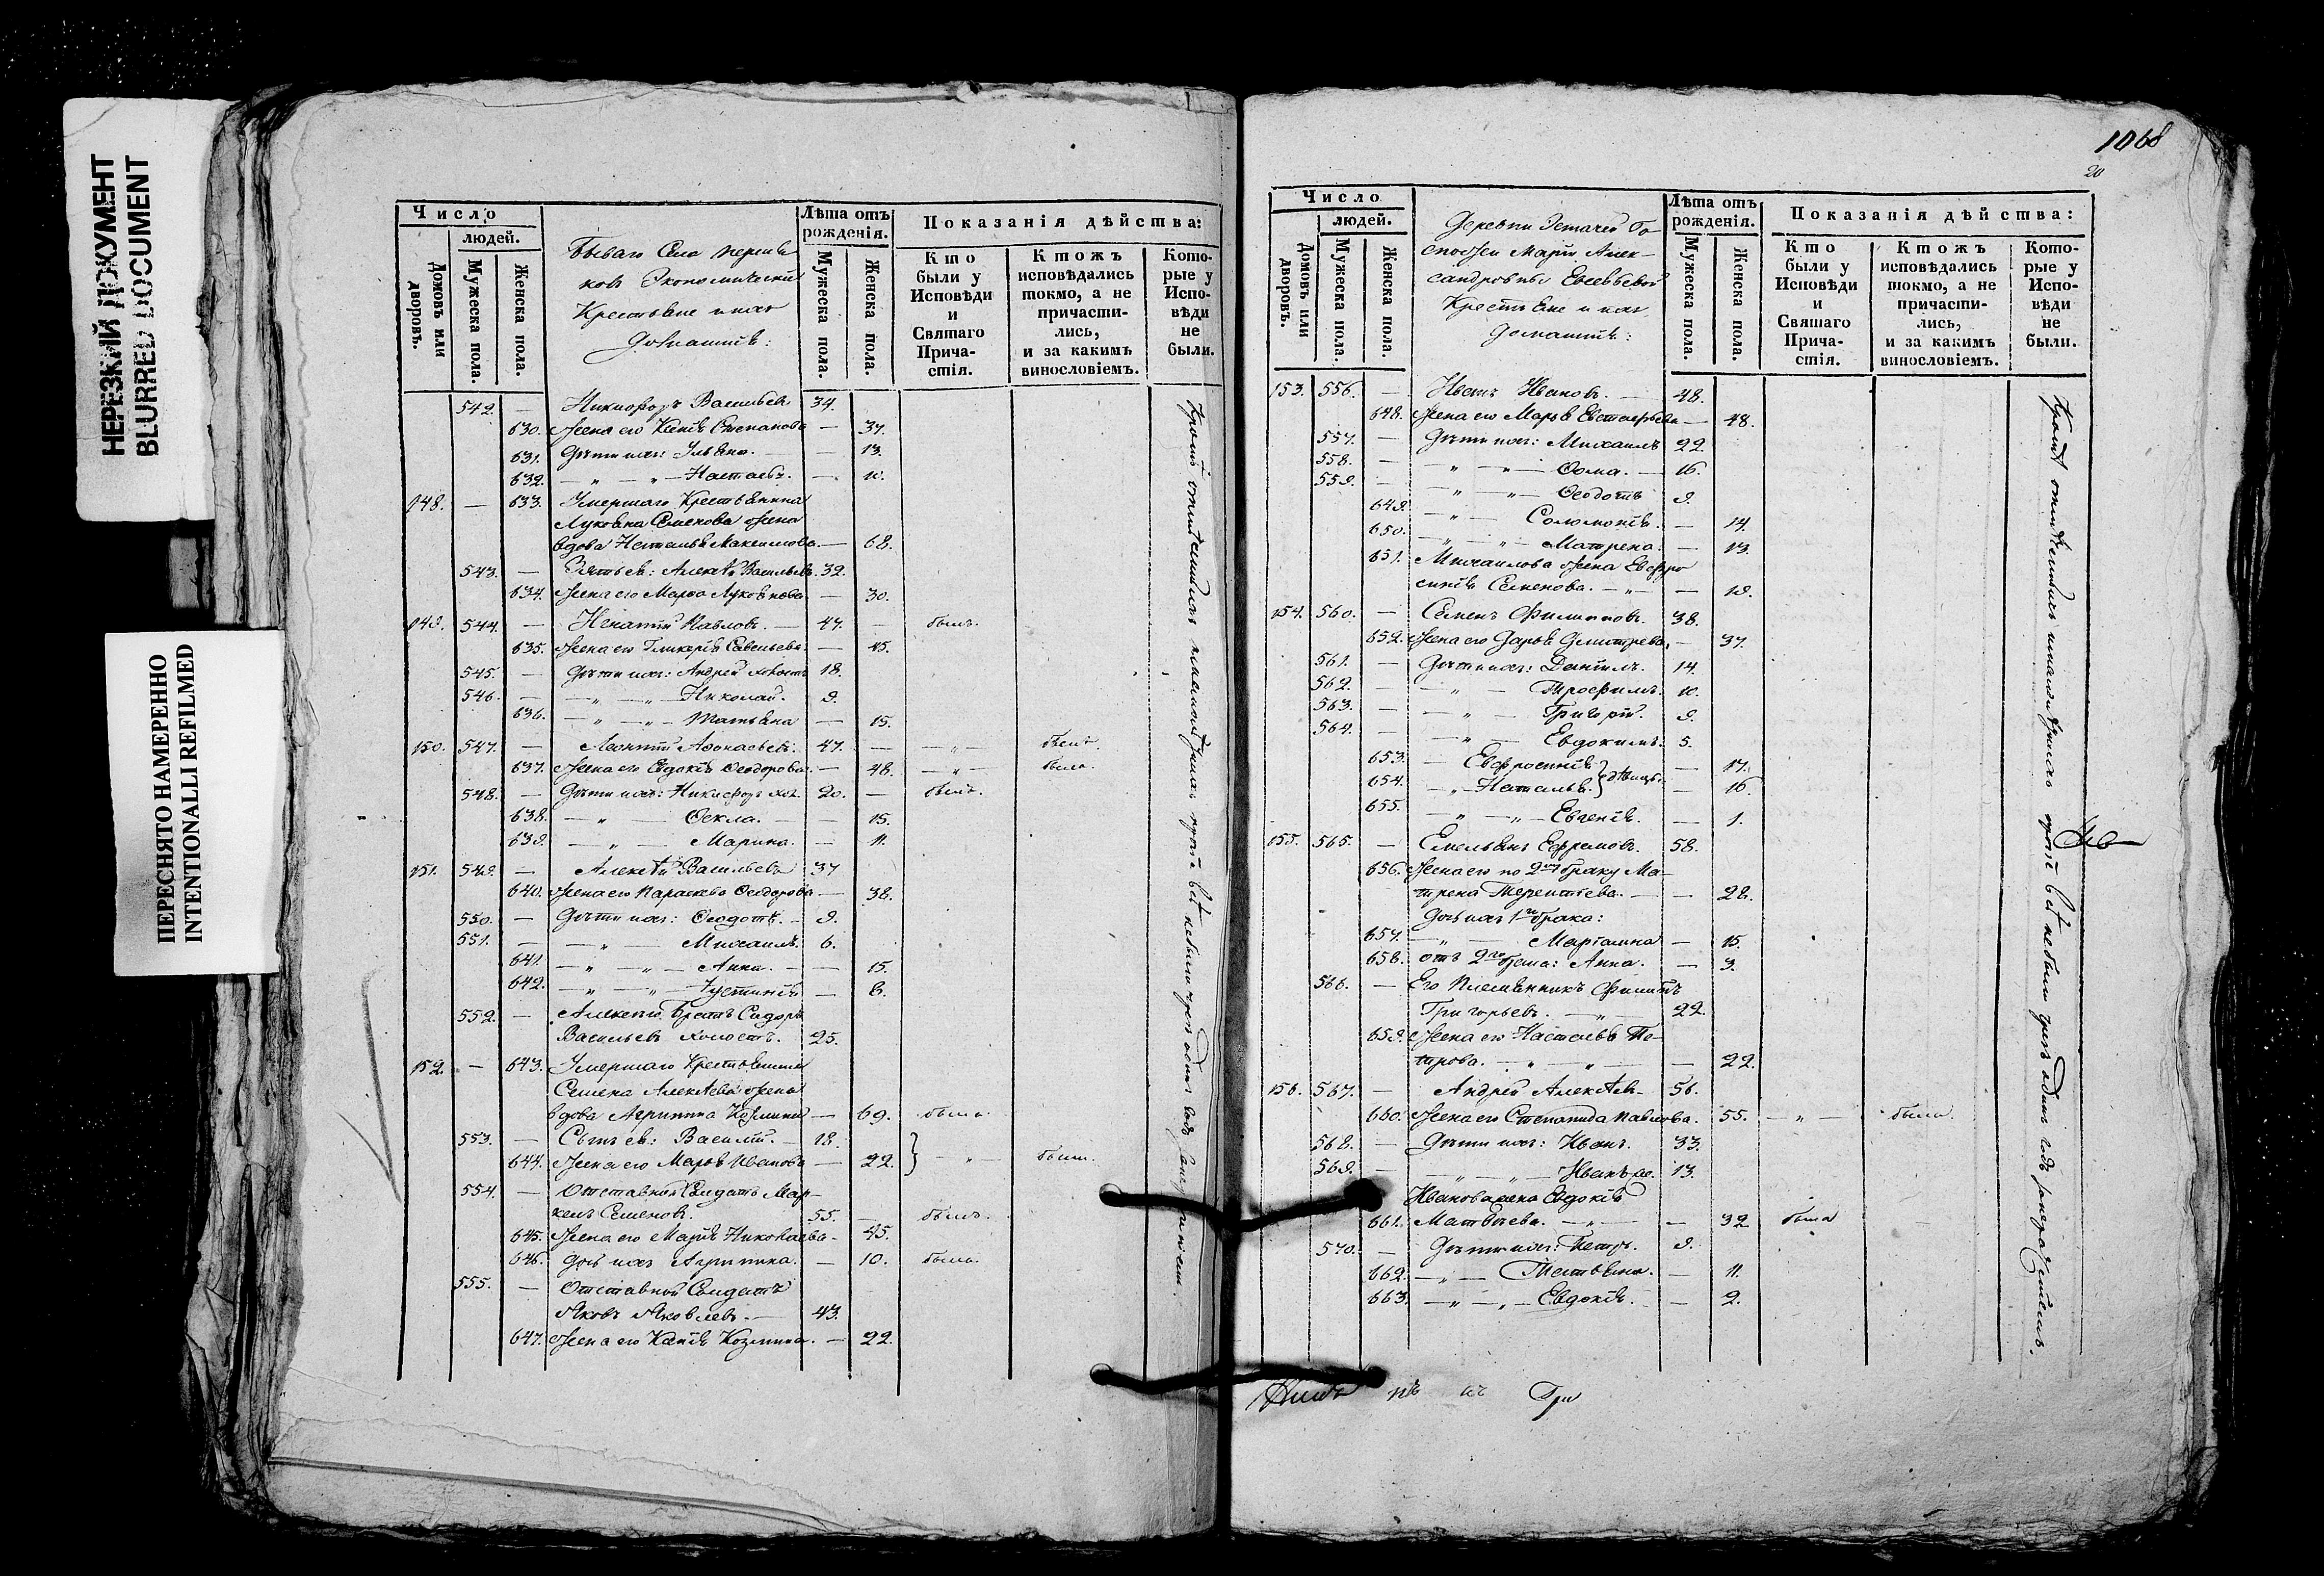 НЕРЕЗКИЙ ДОКУМЕНТ
BLURRED DOCUMENT
ПЕРЕСНЯТО НАМЕРЕННО
INTENTIONALLI REFILMED
Число
людей.
Домовъ или дворовъ.
Мужеска пола.
Женска пола.
Бываго Села
Экономическіи
Крестьяне и ихъ
домашніе:
Лѣта отъ рожденія.
Мужеска пола.
Женска пола.
Показанія дѣйства:
Кто были у Исповѣди и Святаго Причастія.
Ктожъ исповѣдались токмо, а не причастились, и за какимъ винословіемъ.
Которые у Исповѣди не были.
542. — Никифоръ Васильевъ 34.
630. Жена его Ксенія Степанова — 37.
631. Дѣти ихъ: Ульяна. — 13.
632. — „ — „ — Настасья. — 10.
148. — 633. Умершаго Крестьянина
Семенова жена
вдова Наталья Максимова. — 68.
543. — Зять ея: Алексѣй Васильевъ. 32.
634. Жена его Марѳа — 30.
149. 544. — Игнатій Павловъ. — 47. — былъ.
635. Жена его Гликерія Савельева. — 45.
545. — Дѣти ихъ: Андрей холостъ 18.
546. — „ — „ — Николай. 9.
636. — „ — „ — Татьяна — 15.
150. 547. — Леонтій Аѳонасьевъ. 47. — — „ — былъ.
637. Жена его Евдокія Ѳеодорова. — 48. — „ — была.
548. — Дѣти ихъ: Никифоръ хол. 20. — былъ.
638. — „ — Ѳекла. — 15.
639. — „ — Марина. — 11.
151. 549. — Алексѣй Васильевъ 37
640. Жена его Параскева Ѳеодорова — 38.
550. — Дѣти ихъ: Ѳеодотъ. — 9.
551. — — „ — Михаилъ. 6.
641. — „ — „ — Анна. — 15.
642. — „ — „ — Іустинія — 8.
552. — Братъ Сидоръ
Васильевъ холостъ. 25.
152. — 643. Умершаго Крестьянина
Семена Алексѣева жена
вдова Агрипина Козмина — 69. была.
553. — Сынъ ея: Василій. — 18.
644. Жена его Марья Иванова — 22. } — „ — были.
554. — Отставной Солдатъ Мар-
келъ Семеновъ. 55. — былъ.
645. Жена его Марія Николаева — 45.
646. Дочь ихъ Агрипина. — 10. была.
555. — Отставной Солдатъ
Яковъ Яковлевъ. — 43.
647. Жена его Ксенія Козмина. — 22.
1068
20
Число
людей.
Домовъ или дворовъ.
Мужеска пола.
Женска пола.
Деревни Го-
спожи Маріи Алек-
сандровны
Крестьяне и ихъ
домашніе:
Лѣта отъ рожденія.
Мужеска пола.
Женска пола.
Показанія дѣйства:
Кто были у Исповѣди и Святаго Причастія.
Ктожъ исповѣдались токмо, а не причастились, и за какимъ винословіемъ.
Которые у Исповѣди не были.
153. 556. — Иванъ Ивановъ. — 48.
648. Жена его Марья Евстафьева — 48.
557. — Дѣти ихъ: Михаилъ 22.
558. — — „ — „ — Ѳома. — 16.
559. — — „ — „ — Ѳеодотъ 9.
649. — „ — Соломонія. — 14.
650. — „ — „ — Матрена. — 13.
651. Михаилова жена Евфро
синія Семенова. — „ — — 19.
154. 560. — Семенъ Филиповъ. 38.
652. Жена его Дарья Дмитрева. — 37.
561. — Дѣти ихъ: Даніилъ. 14.
562. — — „ — Трофимъ. 10.
563. — — „ — Григорій. 9.
564. — — „ — Евдокимъ. 5.
653. — Евфросинія — 17.
654. — „ — Наталья. } дѣвицы. — 16.
655. — „ — „ — Евгенія. — 1.
155. 565. — Емельянъ Ефремовъ. 58.
656. Жена его по 2му браку Ма-
трена Терентьева. — — 28.
Дочь ихъ 1го брака:
657. — „ — 15.
658. отъ 2го брака: Анна. — 3.
566. — Его Племянникъ Филипъ
Григорьевъ. — „ — 22.
659. Жена его Настасья Пе-
трова. — „ — „ — — 22.
156. 567. — Андрей Алексѣевъ. 56.
660. Жена его Степанида Павлова. 55. — „ — была.
568. — Дѣти ихъ: Иванъ. 33.
569. — — „ — „ — Иванъ же. 13.
Иванова жена Евдокія
661. Матвѣева. — „ — — 32 была
570. — Дѣти ихъ: Петръ. 9.
662. — „ — Татьяна. — 11.
663. — „ — „ — Евдокія. — 2.